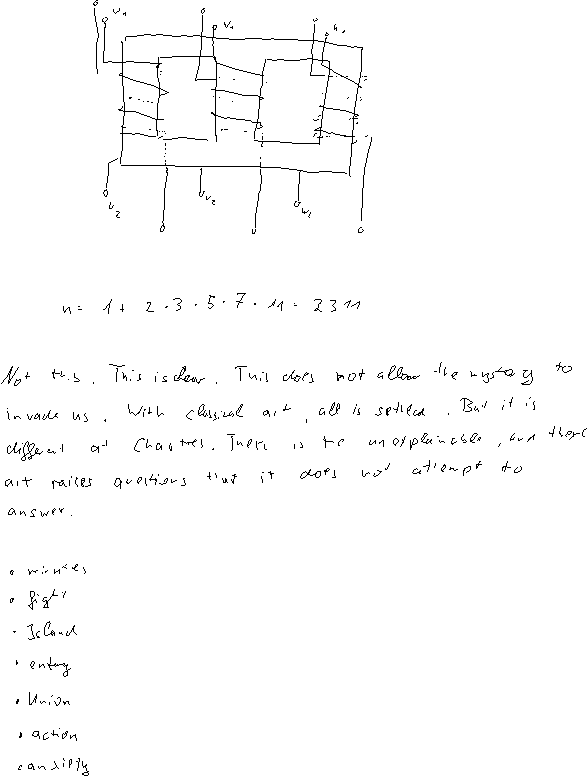 U₁ V₁
U₂ V₂ W₂
n = 1 + 2 · 3 · 5 · 7 · 11 = 2311
Not this. This is clear. This does not allow the mystery to
invade us. With classical art, all is settled. But it is
different at Chartres. There is the unexplainable, and there
art raises questions that it does not attempt to
answer.
• minutes
• fight
• Island
• entry
• Union
• action
• anxiety